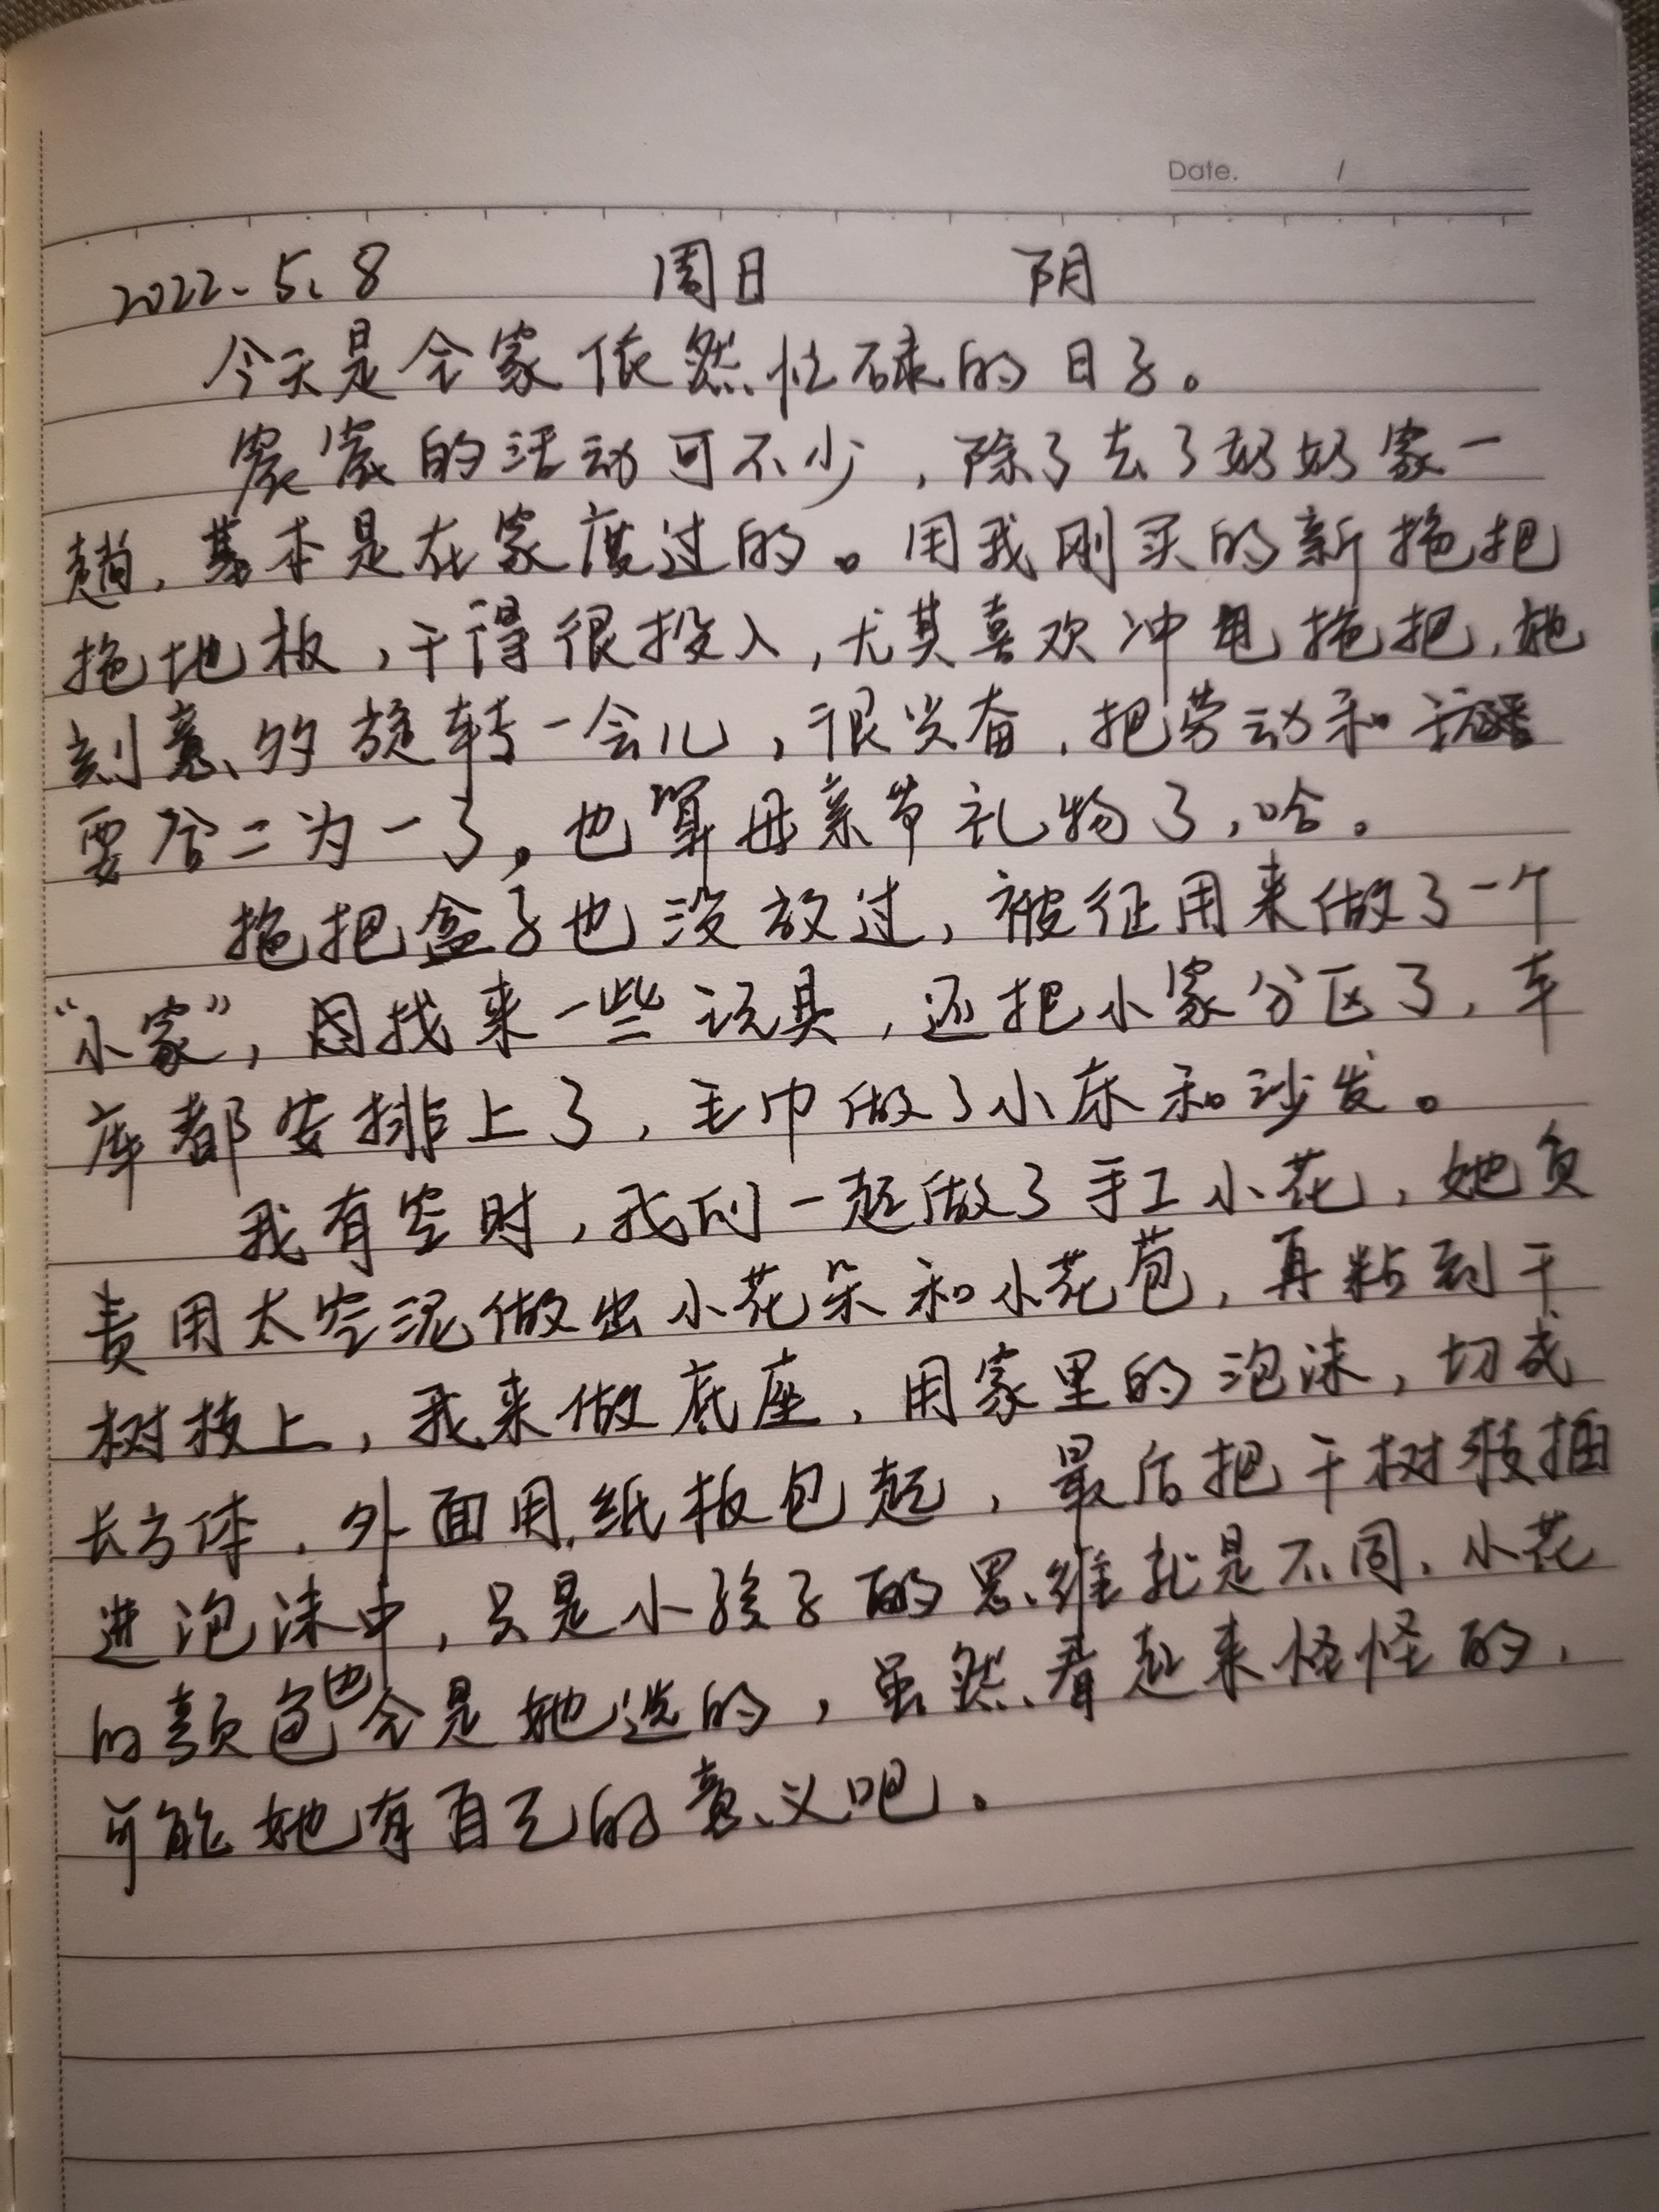 Date. /
2022.5.8 周日 阴
今天是全家依然忙碌的日子。
宸宸的活动可不少，除了去了奶奶家一
趟，基本是在家度过的。用我刚买的新拖把
拖地板，干得很投入，尤其喜欢冲甩拖把，她
刻意的旋转一会儿，很兴奋，把劳动和玩
耍合二为一了。也算母亲节礼物了，哈。
拖把盒子也没放过，被征用来做了一个
“小家”，找来一些玩具，还把小家分区了，车
库都安排上了，毛巾做了小床和沙发。
我有空时，我们一起做了手工小花，她负
责用太空泥做出小花朵和小花苞，再粘到干
树枝上，我来做底座，用家里的泡沫，切成
长方体，外面用纸板包起，最后把干树枝插
进泡沫中，只是小孩子的思维就是不同，小花
的颜色也全是她选的，虽然看起来怪怪的，
可能她有自己的意义吧。